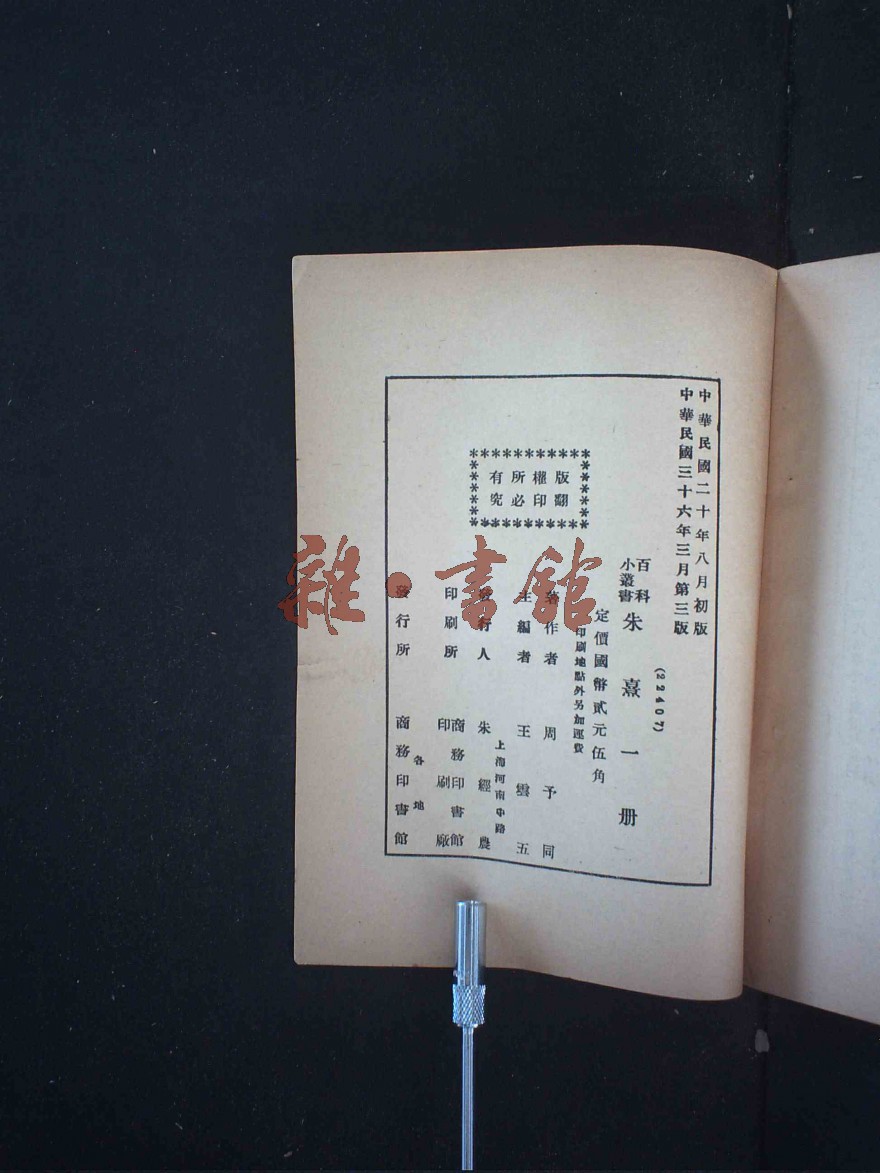 中華民國二十年八月初版
中華民國三十六年三月第三版
(22407)
百科
小叢書
朱熹一册
定價國幣貳元伍角
印刷地點外另加運費
版權所有
翻印必究
著作者 周予同
主編者 王雲五
上海河南中路
發行人 朱經農
印刷所 商務印書館
印刷廠
各地
發行所 商務印書館
雜·書館